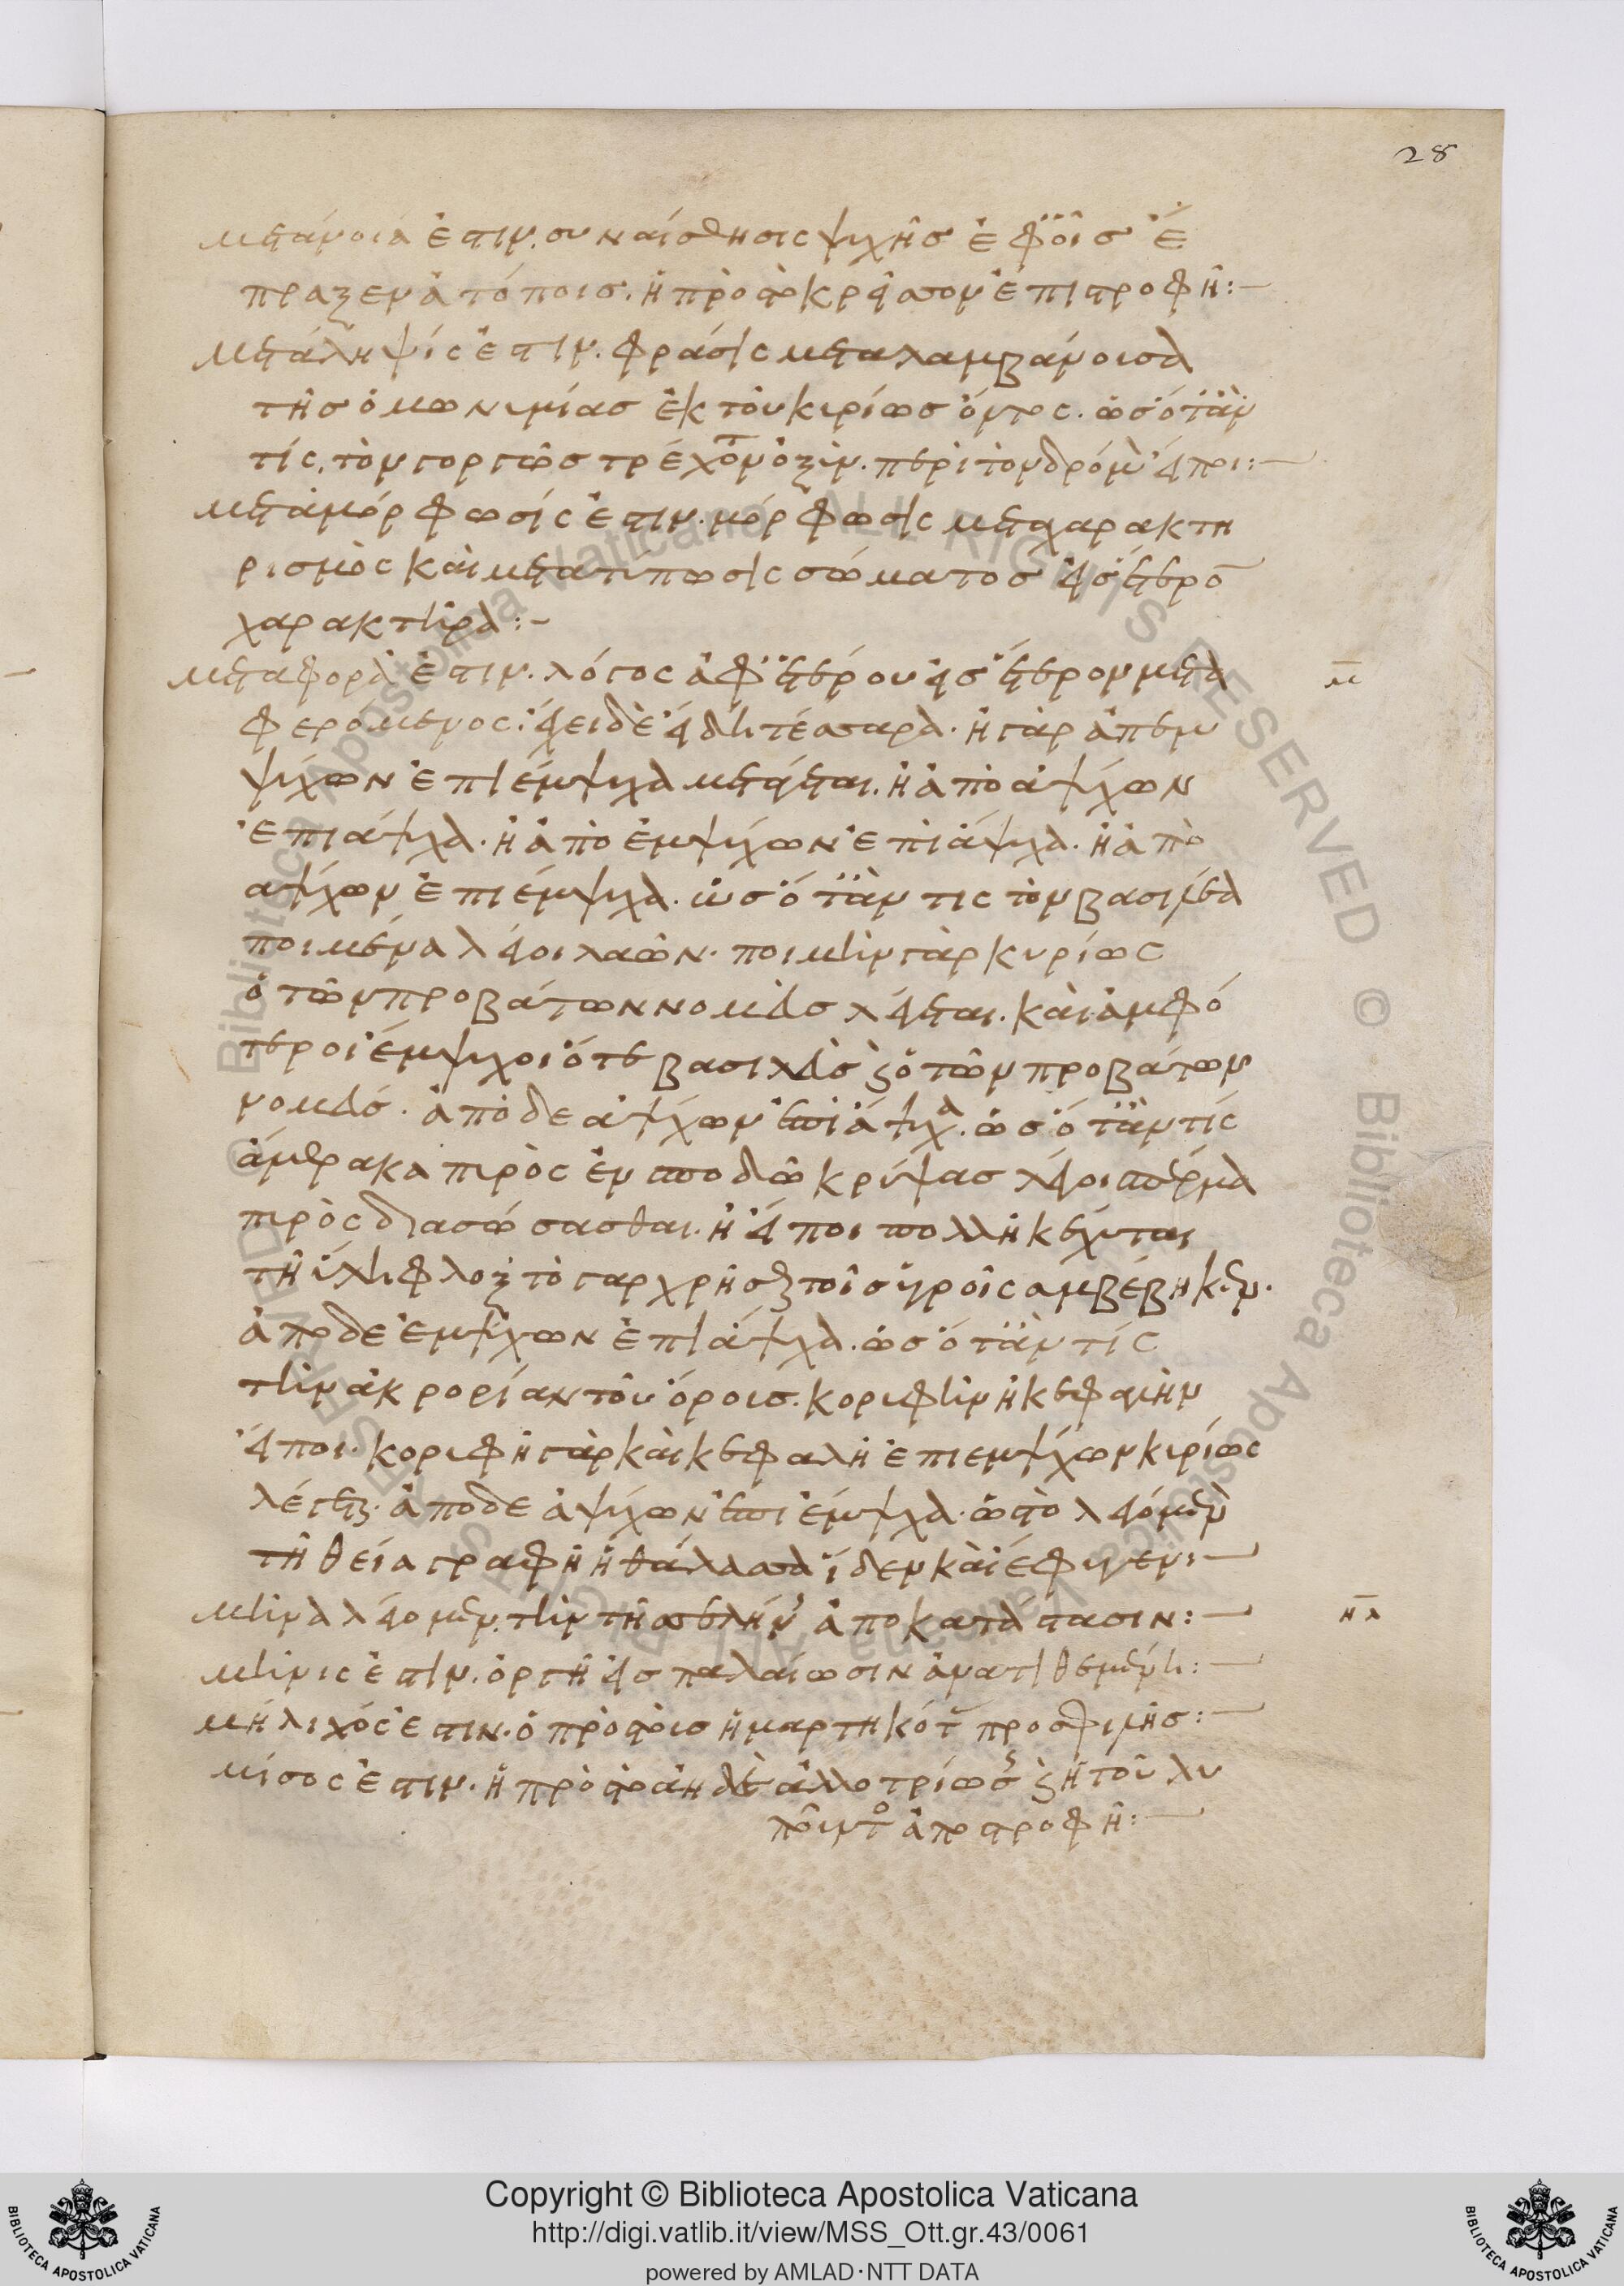 28
μετάνοιά ἐστιν. συναίσθησις ψυχῆς ἐφ' οἷς ἔ
πραξεν ἀτόποις. ἢ πρὸς τὸ κρεῖσσον ἐπιστροφή:—
μετάληψίς ἐστιν. φράσις μεταλαμβάνουσα
τῆς ὁμωνιμίας ἐκ τοῦ κιρίως ὄντος. ὡς ὅταν
τίς, τὸν γοργῶς τρέχοντα ὀξὺν. περὶ τὸν δρόμον εἴποι:—
μεταμόρφωσίς ἐστιν. μόρφωσις μεταχαρακτη
ρισμὸς καὶ μετατύπωσις σώματος εἰς ἕτερον
χαρακτῆρα:—
μεταφορά ἐστιν. λόγος ἀφ' ἑτέρου εἰς ἕτερον μετα
φερόμενος: ἔχει δὲ εἴδη τέσσαρα. ἢ γὰρ ἀπ' ἐμ
ψύχων ἐπὶ ἔμψυχα μετάγεται. ἢ ἀπὸ ἀψύχων
ἐπὶ ἄψυχα. ἢ ἀπὸ ἐμψύχων ἐπὶ ἄψυχα. ἢ ἀπὸ
αψύχων ἐπὶ ἔμψυχα. ὡς ὅταν τις τὸν βασιλέα
ποιμένα λέγοι λαῶν. ποιμὴν γὰρ κυρίως
ὁ τῶν προβάτων νομεὺς λέγεται. καὶ ἀμφό
τεροι ἔμψυχοι ὅ τε βασιλεὺς καὶ ὁ τῶν προβάτων
νομεύς. ἀπὸ δε ἀψύχων ἐπὶ ἄψυχα. ὡς ὅταν τίς
ἄνθρακα πυρὸς ἐν σποδῶ κρύψας λέγοι σπέρμα
πυρὸς διασώσασθαι. ἢ εἴποι πολλὴ κέχυται
τῆ ὕλη φλοξ τὸ γαρ χρῆσθαι τοῖς ὑγροῖς αμβέβηκεν.
ἀπο δε ἐμψύχων ἐπὶ ἄψυχα. ὡς ὅταν τίς
τὴν ἀκρορίαν τοῦ ὄρους. κορυφὴν ἢ κεφαλὴν
εἴποι. κορυφὴ γὰρ καὶ κεφαλὴ ἐπὶ εμψύχων κιρίως
λέγεται. ἀπο δε ἀψύχων ἐπὶ ἔμψυχα. ὡς τὸ λεγόμενον
τῆ θεία γραφῆ ἡ θάλασσα ἴδεν καὶ ἔφυγεν:—
μῆνα λέγομεν. τὴν τῆς σελήνης ἀποκατάστασιν:—
μῆνις ἐστιν. ὀργὴ εἰς παλαίωσιν ἀνατιθεμένη:—
μήλιχός ἐστιν. ὁ πρὸς τοὺς ἡμαρτηκότας προσηνής:—
μίσος ἐστιν. ἡ πρὸς τὸ ἀηδὲς ἀλλοτρίωσις καὶ ἡ τοῦ λυ
ποῦντος ἀποστροφή:—
Copyright © Biblioteca Apostolica Vaticana
http://digi.vatlib.it/view/MSS_Ott.gr.43/0061
powered by AMLAD·NTT DATA